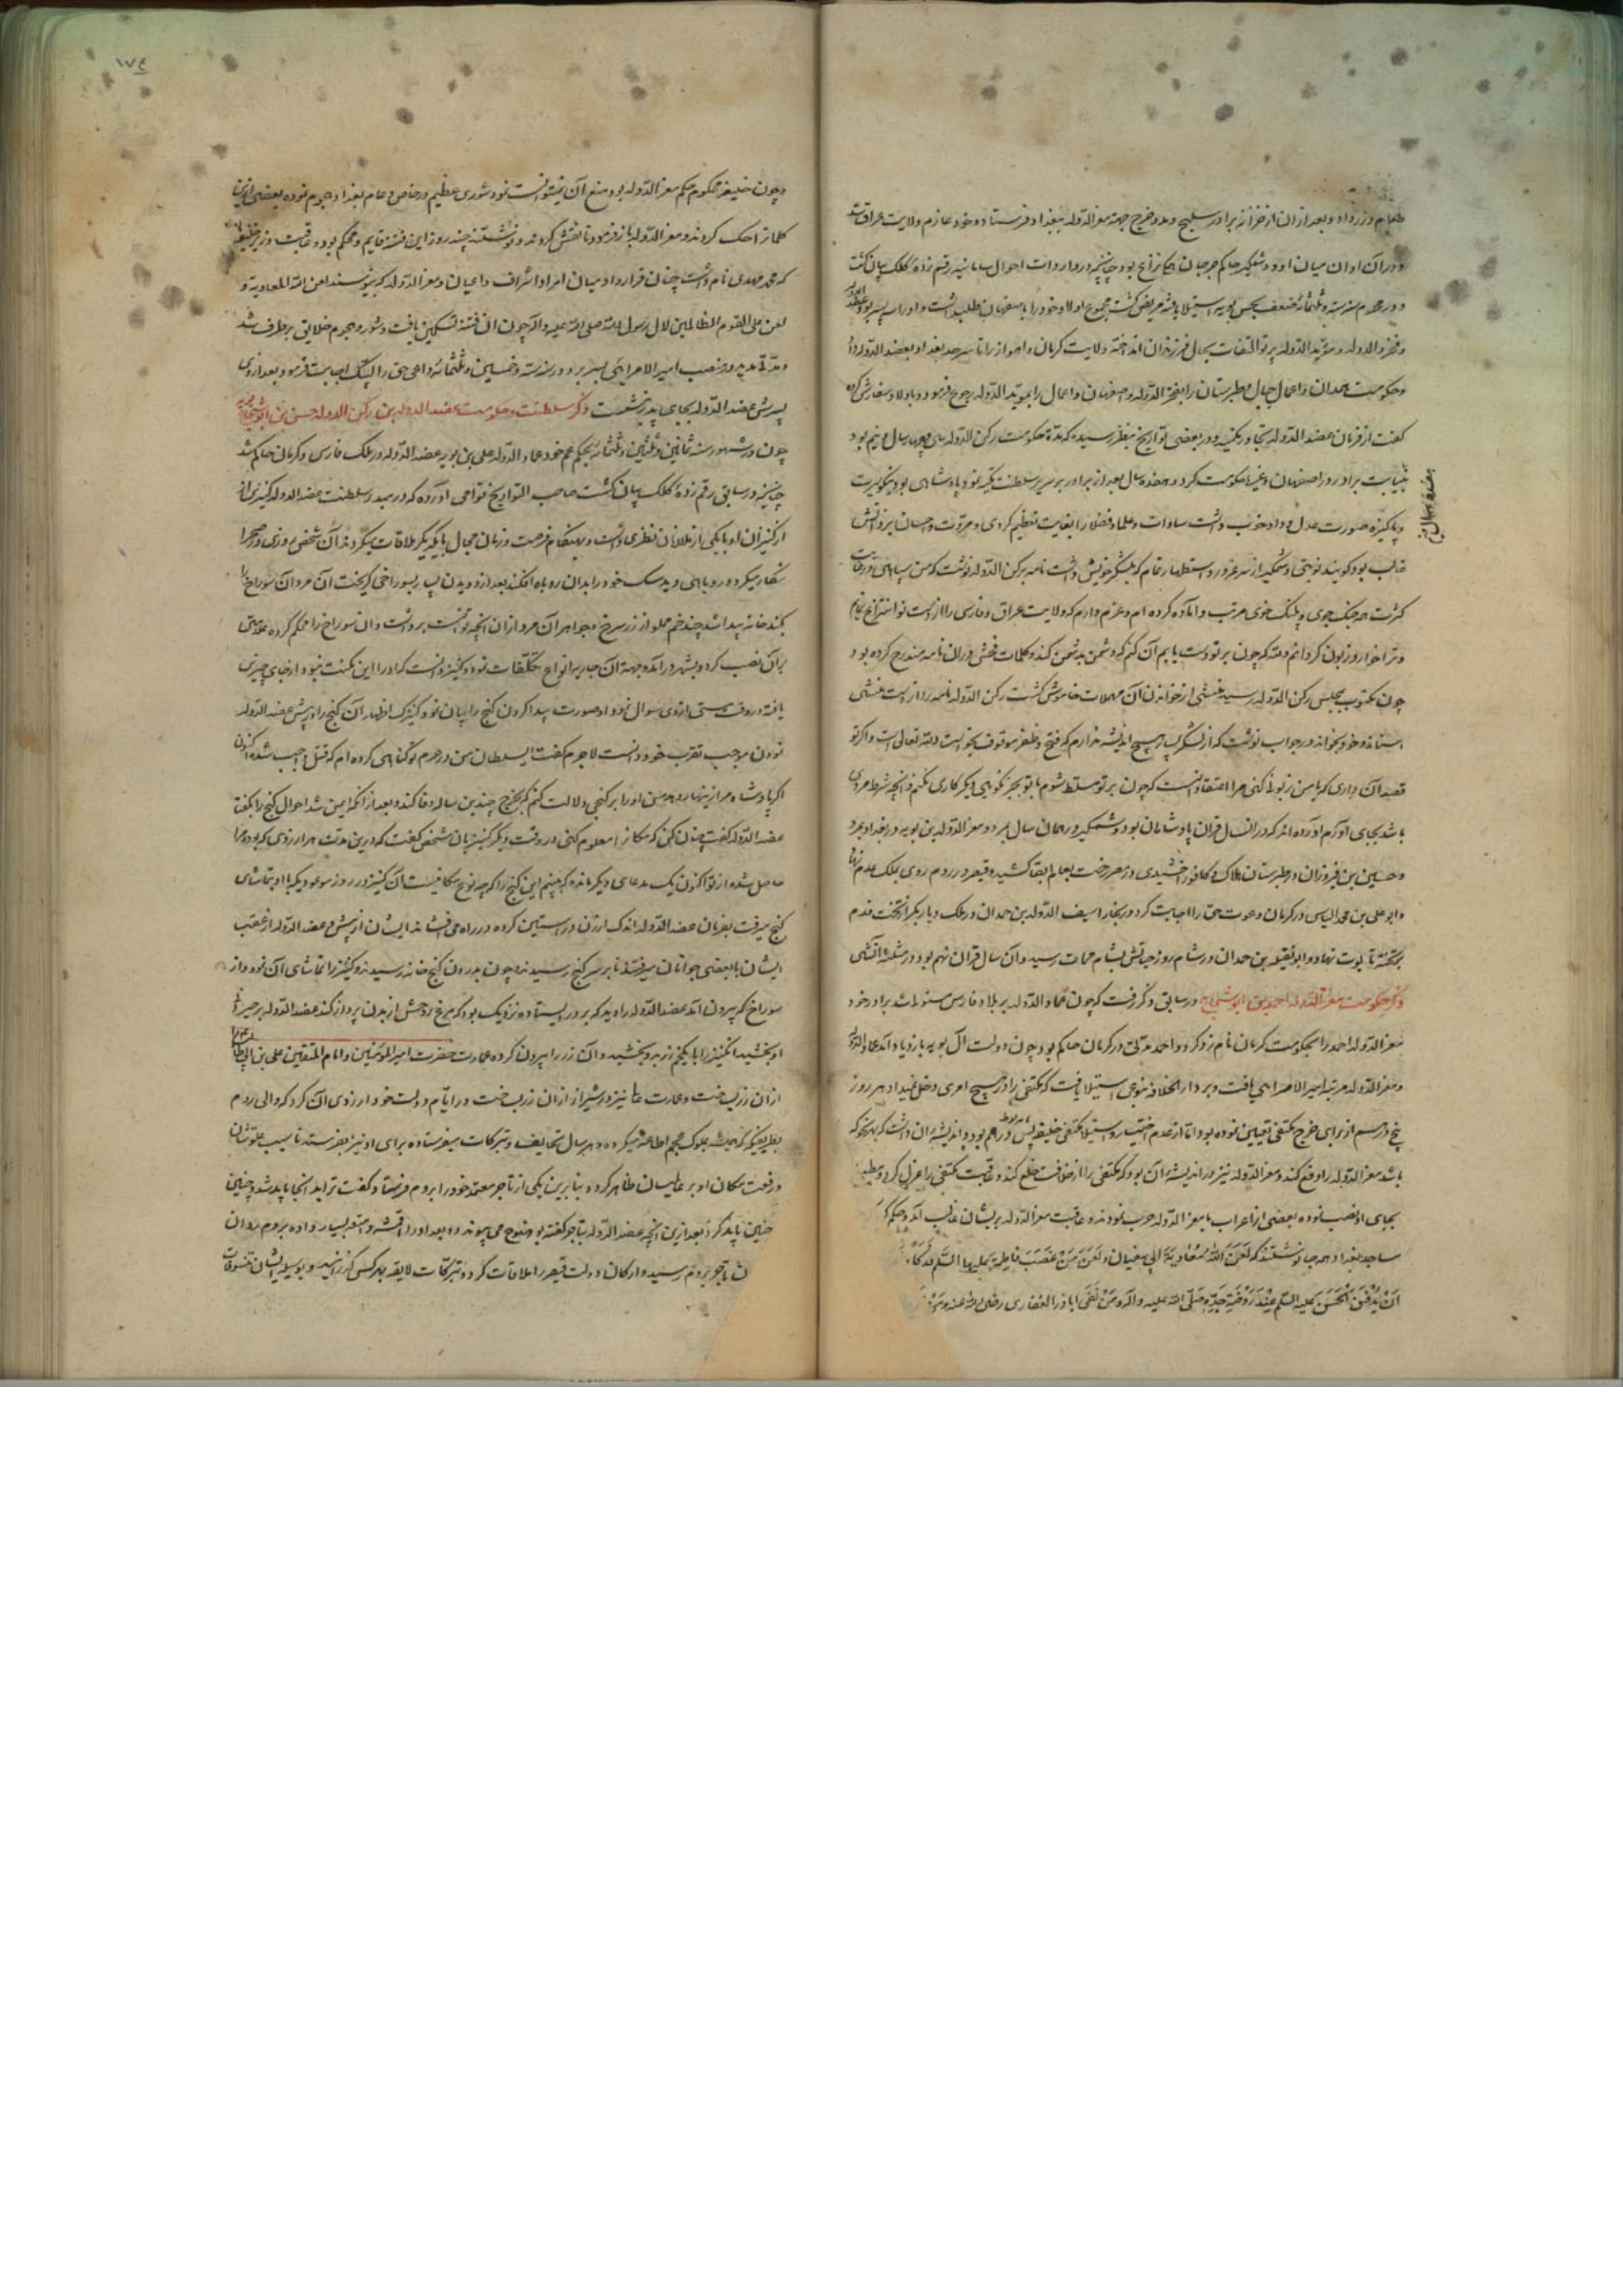 طعام و زر داد و بعد از ان از خزانه برادر سلیح و مدد خرج جهة معز الدوله ببغداد فرستاد و خود عازم ولایت عراق شد
و در آن اوان میان او و وشمگیر حاکم جرجان نزاع بود چنانچه در واردات احوال سامانیه رقم زده کلک بیان گشت
و در محرم سنه ستة و ثلثمائه ضعف بحسن بویه استیلا یافته مریض گشت مجموع اولاد خود را باصفهان طلب داشت و او را سه پسر بود عضد الدوله
و فخر الدوله و مؤید الدوله پرتو التفات بحال فرزندان انداخته ولایت کرمان و اهواز را تا سرحد بغداد بعضد الدوله داد
و حکومت همدان و اعمال جبال و طبرستان را بفخر الدوله و اصفهان و اعمال را بمؤید الدوله رجوع فرمود و باولاد سفارش کرده
گفت از فرمان عضد الدوله تجاوز نکنید و در بعضی تواریخ بنظر رسیده که مدة حکومت رکن الدوله سی و چهار سال و نیم بود
بنیابت برادر در اصفهان و غیرها حکومت کرد و هفده سال بعد از برادر بر سریر سلطنت تکیه نمود پادشاهی بود نیکو سیرت
و پاکیزه صورت عدل و داد خوب داشت سادات و علما و فضلا را بغایت تعظیم کردی و مروت و احسان
غالب بود گویند نوبتی وشمگیر از سر غرور و استظهار تمام که بلشکر خویش داشت نامه برکن الدوله نوشت که من سپاهی در غایت
کثرت همه جنک جوی و پلنک خوی مرتب و آماده کرده ام و عزم دارم که ولایت عراق و فارسی را از دست تو انتزاع نمایم
و ترا خوار و زبون گردانم والله که چون بر تو دست یابم آن کنم که دشمن بدشمن کند و کلمات فحش در ان نامه مندرج کرده بود
چون مکتوب بمجلس رکن الدوله رسید منشی از خواندن آن مهملات خاموش گشت رکن الدوله نامه را از دست منشی
استاند و خود بخواند و در جواب نوشت که از لشکر بسیار هیچ اندیشه ندارم که فتح و ظفر موقوف بخواست الله تعالی است و اگر تو
قصد آن داری که با من زبونی کنی مرا اعتقاد آنست که چون بر تو مسلط شوم با تو بجز نکویی دیگر کاری نکنم و آنچه شرط مردی
باشد بجای آورم آورده اند که در ان سال قران پادشاهان بود وشمگیر در همان سال بمرد و معز الدوله بن بویه در بغداد بمرد
و حسن بن فیروزان در طبرستان هلاک و کافور اخشیدی در مصر رخت بعالم بقا کشید و قیصر در روم روی بملک عدم نهاد
و ابو علی بن محمد الیاس در کرمان دعوت حق را اجابت کرد و سیف الدوله بن حمدان در ملک دیار بکر از تخت قدم
بر تخته تابوت نهاد و ابو تغلب بن حمدان در شام روز حیاتش بشام ممات رسید و آن سال قران نهم بود در مثلثه آتشی
ذکر حکومت معز الدوله احمد بن ابو شجاع در سابق ذکر رفت که چون عماد الدوله بر بلاد فارس مستولی شد برادر خود
معز الدوله احمد را بحکومت کرمان نامزد کرد و احمد مدتی در کرمان حاکم بود چون دولت آل بویه بازدیاد آمد عماد الدوله
و معز الدوله مرتبه امیر الامرایی یافت و بر دار الخلافه بنوعی استیلا یافت که مکتفی را در هیچ امری دخل نمیداد هر روز
پنج درهم از برای خرج مکتفی تعیین نموده بود اما از عدم اختیار و استیلا مکتفی خلیفه پس درهم بود و اندیشه ان داشت که بهر نحو که
باشد معز الدوله را دفع کند و معز الدوله نیز در اندیشه آن بود که مکتفی را از خلافت خلع کند و عاقبت مکتفی را عزل کرد و مطیع
بجای او نصب نموده بعضی از اعراب با معز الدوله حرب نمودند و عاقبت معز الدوله بریشان غالب آمد و حکم کرد
مساجد بغداد همه جا نوشتند که لَعَنَ اللهُ مُعَاوِیَةَ ابی سفیان و لَعَنَ مَنْ غَصَبَ فاطمة علیها السلام فدکا
اَنْ یُدْفَنَ الْحَسَنَ علیه السلم عِنْدَ رَوْضَةِ جَدِّهِ صلی الله علیه و آله و مَنْ نَفَی اباذر الغفاری رضی الله عنه
هفده سال
۱۷۴
و چون خلیفه محکوم حکم معز الدوله بود منع آن نتوانست نمود شوری عظیم در خاص و عام بغداد هجوم نموده بعضی از این
کلمات را حک کردند و معز الدوله باز فرمود تا نقش کردند و نوشتند چند روز این فتنه قایم و محکم بود و عاقبت وزیر خلیفه
که محمد مهدی نام داشت چنان قرار داد میان امرا و اشراف و اعیان و معز الدوله که بنویسند لعن الله المعاویة و
لعن علی القوم الظالمین لال رسول الله صلی الله علیه و اله چون ان فتنه تسکین یافت و شور و هجوم خلایق بر طرف شد
و مدتی مدید در منصب امیر الامرایی بسر برد و در سنه ستة و خمسین و ثلثمائه داعی حق را لبیک اجابت فرمود بعد از وی
پسرش عضد الدوله بجای پدر نشست ذکر سلطنت و حکومت عضد الدوله بن رکن الدوله حسن بن ابو شجاع
چون در شهور سنه ثمانین و ثلثین و ثلثمائه بحکم عم خود عماد الدوله علی بن بویه عضد الدوله در ملک فارس و کرمان حاکم شد
چنانچه در سابق رقم زده کلک بیان گشت صاحب التواریخ قوامی آورده که در مبدء سلطنت عضد الدوله کنیزک از
از کنیزان او با یکی از غلامان نظری داشت و بهنگام فرصت و زمان مجال با یکدیگر ملاقات میکردند آن شخص روزی در صحرا
شکار میکرد و روباهی دید سک خود را بدان روباه افکند بعد از دویدن بسیار بسوراخی گریخت آن مرد آن سوراخ را
بکند خانه پیدا شد چند خم مملو از زر سرخ و جواهر آن مرد از ان آنچه توانست برداشت و ان سوراخ را محکم کرده علامتی
بر آن نصب کرد و بشهر در آمد و جهة آن جاریه انواع تکلفات نمود و کنیز دانست که او را این مکنت نبود و از جای چیزی
یافته در وقت مستی از وی سوال نمود او صورت پیدا کردن گنج را بیان نمود کنیزک اظهار آن گنج را در پیش عضد الدوله
نمودن موجب تقرب خود دانست لاجرم گفت ای سلطان من در حرم تو گناهی کرده ام که قتل واجب شده اکنون
اگر پادشاه مرا زینهار دهد من او را بر گنجی دلالت کنم که بخرج چندین ساله وفا کند و بعد از آنکه ایمن شد احوال گنج را بگفت
عضد الدوله گفت چنان کن که مکان را معلوم کنی در وقت دیگر کنیز بان شخص گفت که درین مدت هر آرزوی که بود مرا
حاصل شده از تو اکنون یک مدعای دیگر مانده که ببینم این گنج را که چه نوع مکانیست آن کنیز در روز موعود دیگر با او بتماشای
گنج میرفت بفرمان عضد الدوله اندک ارزن در آستین کرده در راه می افشاند ایشان از پیش و عضد الدوله از عقب
ایشان با بعضی جوانان میرفتند تا بر سر گنج رسیدند چون بدرون گنج خانه رسیدند و کنیز را تماشای آن نمود و از
سوراخ که بیرون آمد عضد الدوله را دید که بر در ایستاده نزدیک بود که مرغ روحش از بدن پرواز کند عضد الدوله بر حیرت
او بخشید آن کنیز را با یک خم زر بدو بخشید و آن زر را بیرون کرده عمارت حضرت امیر المؤمنین و امام المتقین علی بن ابی طالب
از ان زر بساخت و عمارت عالی نیز در شیراز از ان زر بساخت و در ایام دولت خود آرزوی آن کرد که والی روم
بطریقیکه همیشه بملوک عجم اطاعة میکرده و هر سال تحایف و تبرکات میفرستاده برای او نیز بفرستد تا سبب علو شان
و رفعت مکان او بر عالمیان ظاهر کردد بنا برین یکی از تاجر معتمد خود را بروم فرستاد و گفت ترا بد انجا باید شد و چنین
چنین باید کرد بعد از این آنچه عضد الدوله بتاجر گفته بود بوضوح می پیوندد و بعد او را اقمشه و امتعه بسیار داده بروم روان
آن تاجر بروم رسید و ارکان دولت قیصر را ملاقات کرد و تبرکات لایقه بهر کس گذرانید و بوسیله ایشان